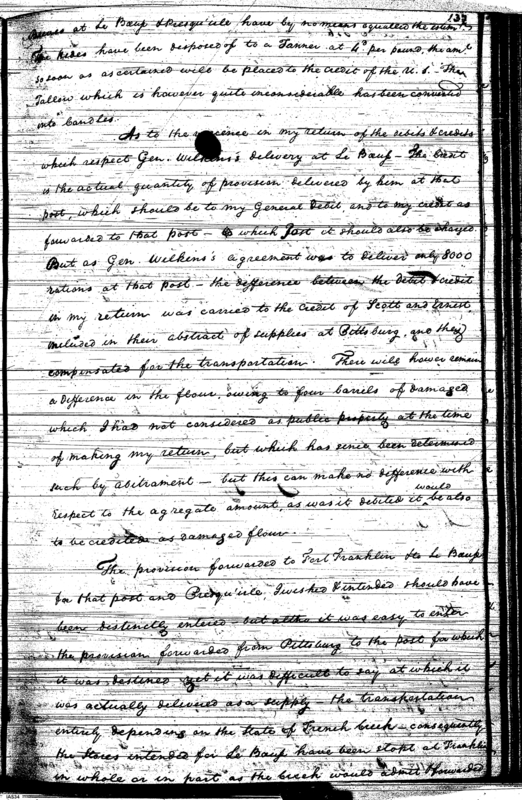 137
Beeves at Le Bœuf & Presqu'isle have by no means equalled the estim.
The hides have been disposed of to a Tanner at 4d per pound, the amt
so soon as ascertained will be placed to the credit of the U. S. The
Tallow which is however quite inconsiderable has been converted
into Candles.
As to the in my return of the debits & credits
which respect Gen. Wilkins's delivery at Le Bœuf — The
is the actual quantity of provision delivered by him at that
post, which should be to my General debit and to my credit as
forwarded to that post — to which post it should also be charged.
But as Gen. Wilkins's agreement was to deliver only 8000
rations at that post — the difference between the debit & credit
in my return was carried to the credit of Scott and Ernest
included in their abstract of supplies at Pittsburg, and they
compensated for the transportation. There will however remain
a difference in the flour, owing to four barrels of damaged
which I had not considered as public property at the time
of making my return, but which has since been determined
such by abitrament — but this can make no difference with
respect to the agregate amount, as was it debited it would be also
to be credited as damaged flour.
The provision forwarded to Fort Franklin & to Le Bœuf
for that post and Presqu'isle, I wished & intended should have
been distinctly entered — but altho it was easy to enter
the provision forwarded from Pittsburg to the post for which
it was destined yet it was difficult to say at which it
was actually delivered as a supply the transportation
entirely depending on the State of French Creek — consequently
the Stores intended for Le Bœuf have been stopt at Franklin
in whole or in part as the Creek would admit & forwarded